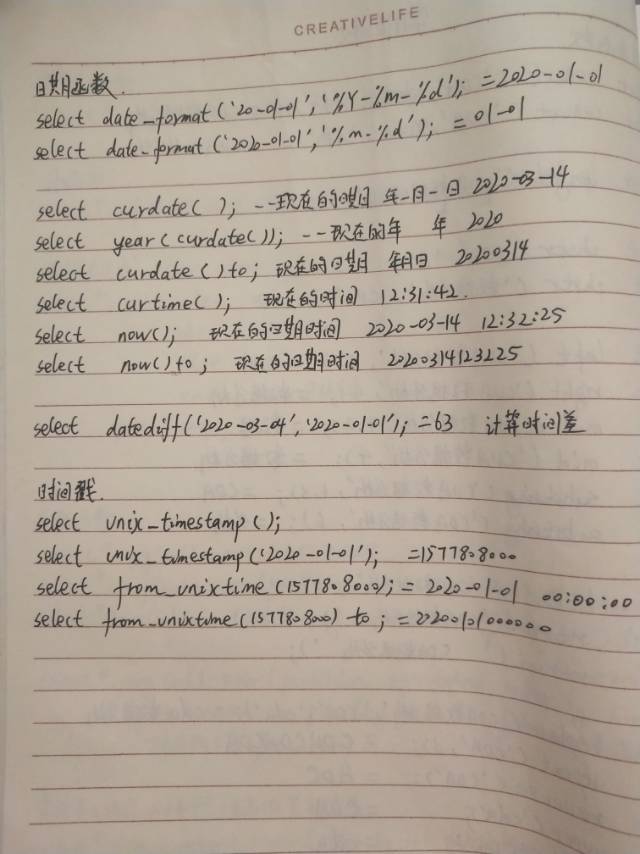 CREATIVELIFE
日期函数.
select date_format('20-01-01','%Y-%m-%d'); =2020-01-01
select date_format('2020-01-01','%m-%d'); = 01-01
select curdate( ); --现在的日期 年-月-日 2020-03-14
select year(curdate()); --现在的年 年 2020
select curdate()+0; 现在的日期 年月日 20200314
select curtime(); 现在的时间 12:31:42.
select now(); 现在的日期时间 2020-03-14 12:32:25
select now()+0; 现在的日期时间 20200314123225
select datediff('2020-03-04','2020-01-01'); =63 计算时间差
时间戳.
select unix_timestamp();
select unix_timestamp('2020-01-01'); =1577808000
select from_unixtime(1577808000); = 2020-01-01 00:00:00
select from_unixtime(1577808000)+0; =20200101000000